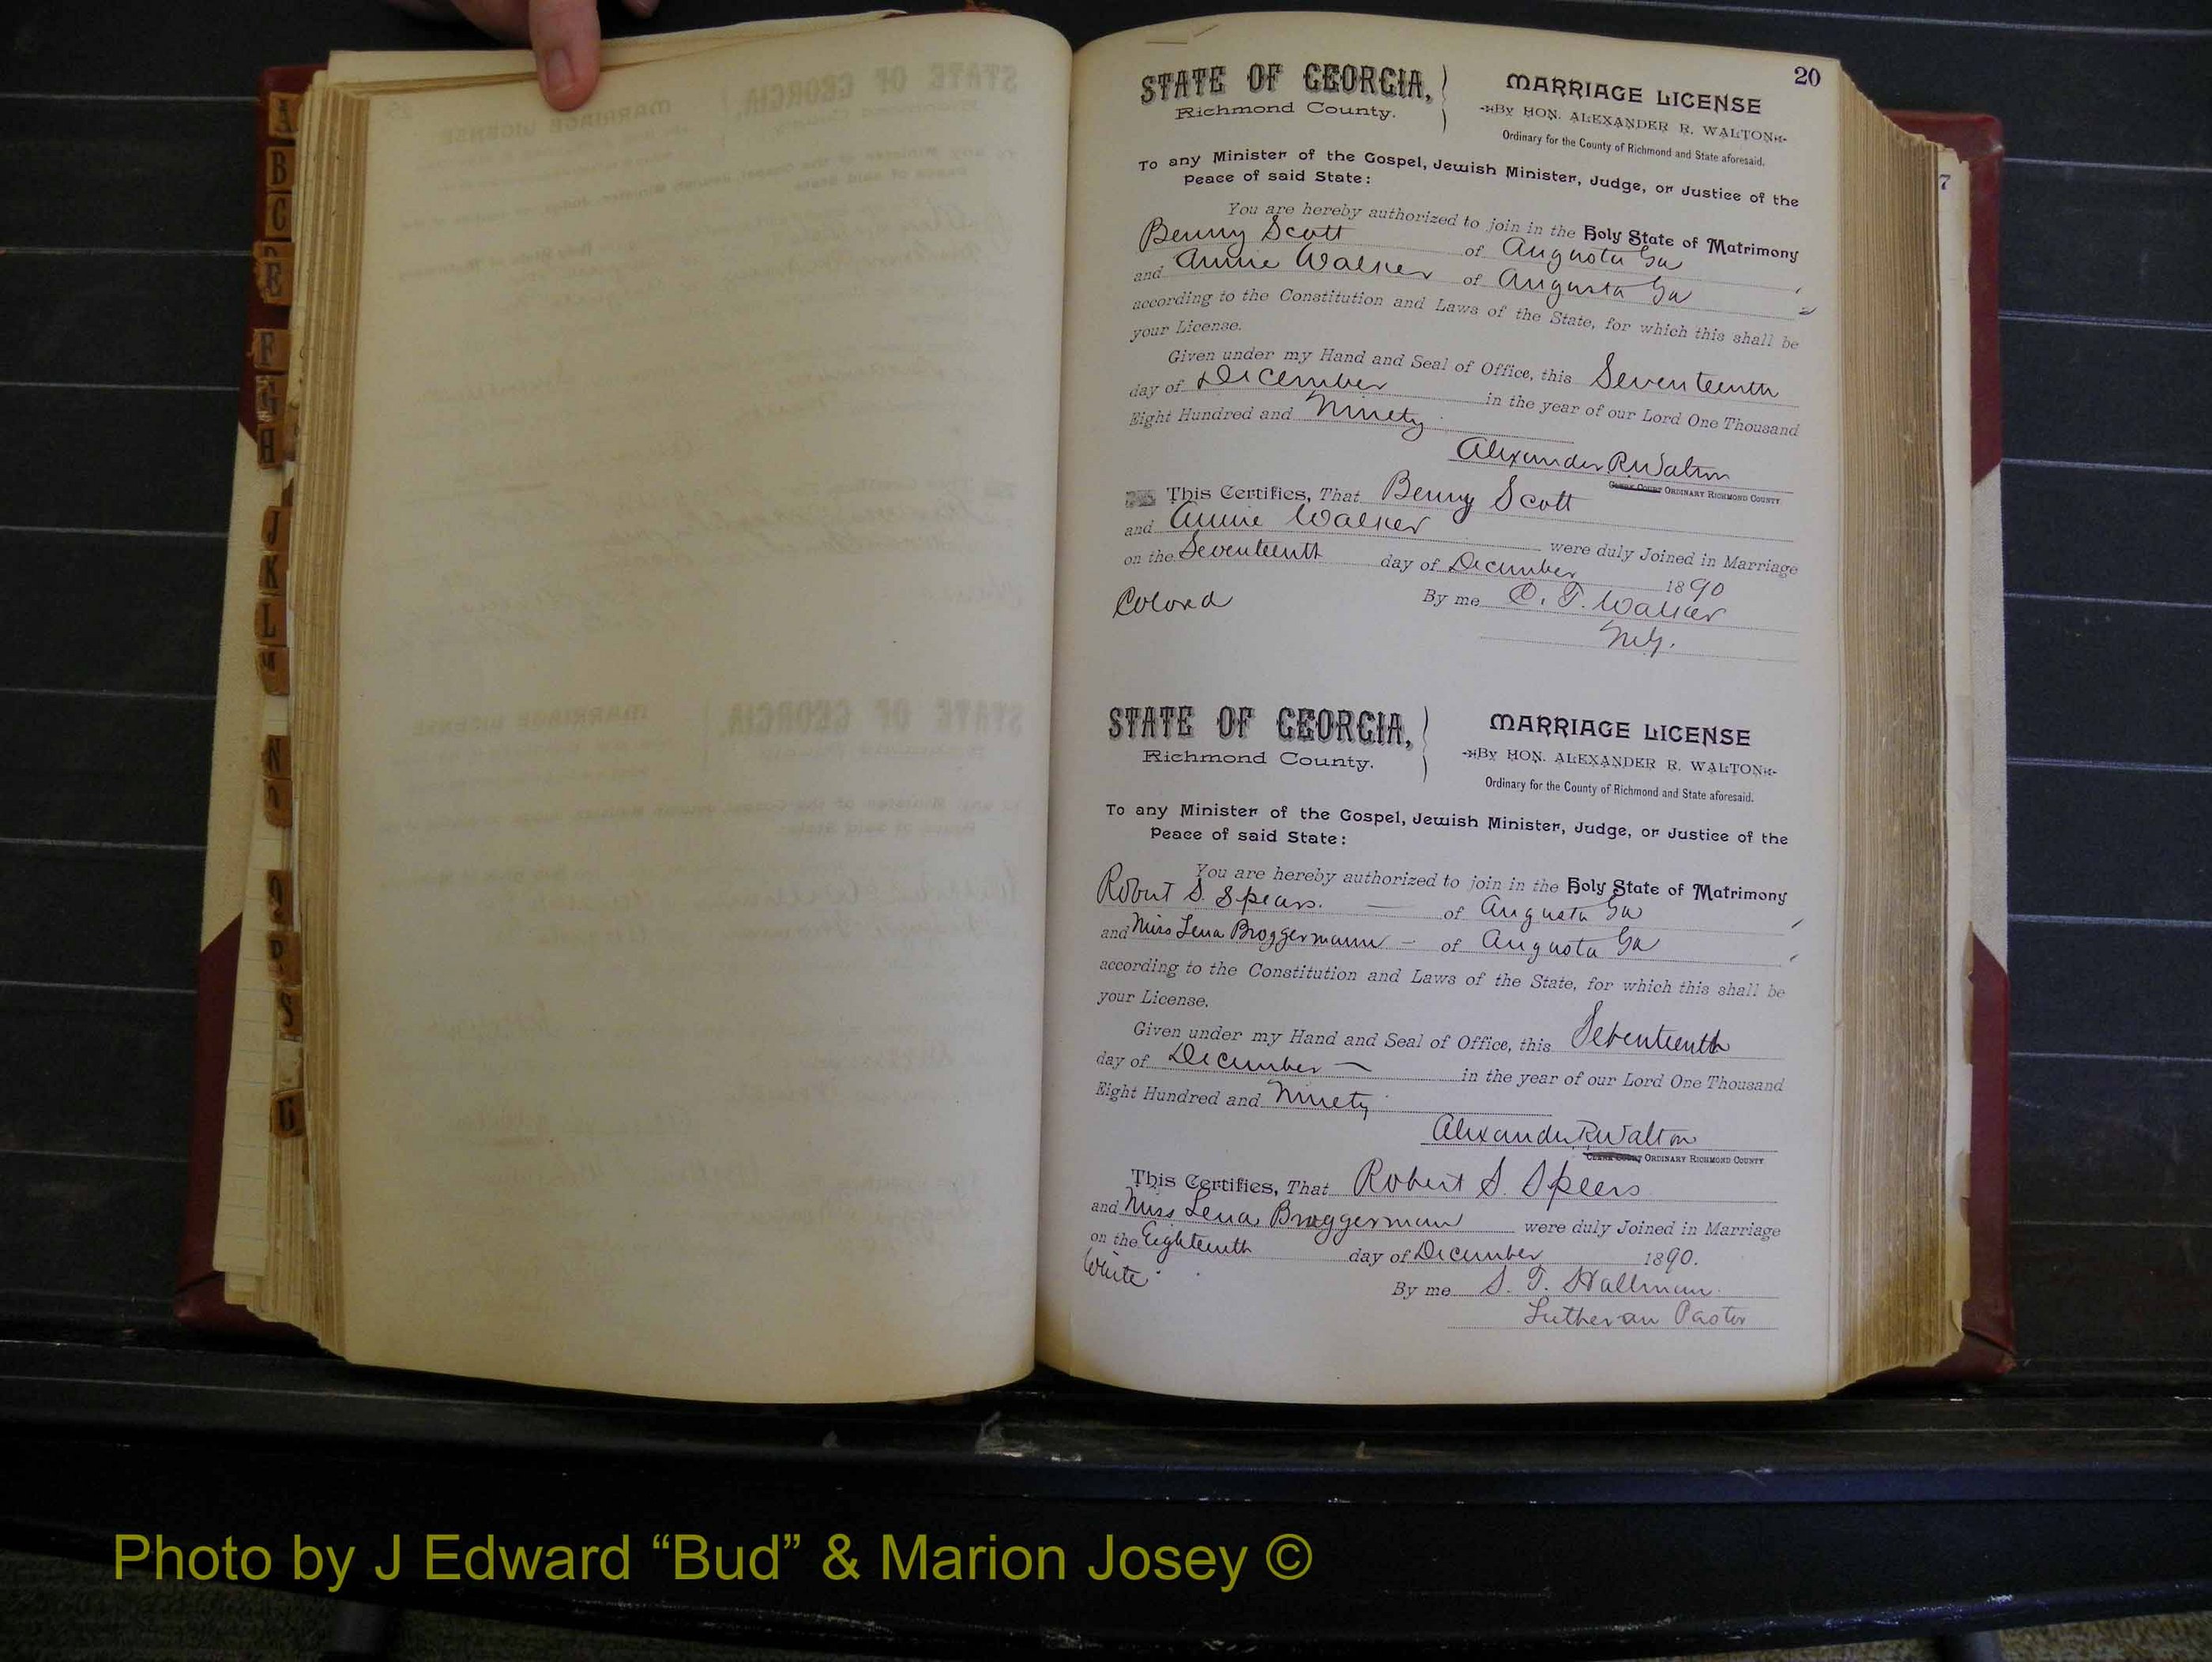 A
B
C
E
F
G
H
J
K
L
M
N
O
P
S
20
7
STATE OF GEORGIA,
Richmond County.
MARRIAGE LICENSE
By HON. ALEXANDER R. WALTON
Ordinary for the County of Richmond and State aforesaid.
To any Minister of the Gospel, Jewish Minister, Judge, or Justice of the
Peace of said State:
You are hereby authorized to join in the Holy State of Matrimony
Benny Scott of Augusta Ga
and Annie Walker of Augusta Ga
according to the Constitution and Laws of the State, for which this shall be
your License.
Given under my Hand and Seal of Office, this Seventeenth
day of December in the year of our Lord One Thousand
Eight Hundred and Ninety
Alexander R Walton
Clerk Court ORDINARY RICHMOND COUNTY
This Certifies, That Benny Scott
and Annie Walker
were duly Joined in Marriage
on the Seventeenth day of December 1890
Colord By me C. T. Walker
M.G.
STATE OF GEORGIA,
Richmond County.
MARRIAGE LICENSE
By HON. ALEXANDER R. WALTON
Ordinary for the County of Richmond and State aforesaid.
To any Minister of the Gospel, Jewish Minister, Judge, or Justice of the
Peace of said State:
You are hereby authorized to join in the Holy State of Matrimony
Robert S. Spears. of Augusta Ga
and Miss Lena Broggermann - of Augusta Ga
according to the Constitution and Laws of the State, for which this shall be
your License.
Given under my Hand and Seal of Office, this Seventeenth
day of December in the year of our Lord One Thousand
Eight Hundred and Ninety
Alexander R Walton
Clerk Court ORDINARY RICHMOND COUNTY
This Certifies, That Robert S. Speers
and Miss Lena Broggerman were duly Joined in Marriage
on the Eighteenth day of December 1890.
White By me S. T. Hallman
Lutheran Pastor
Photo by J Edward “Bud” & Marion Josey ©